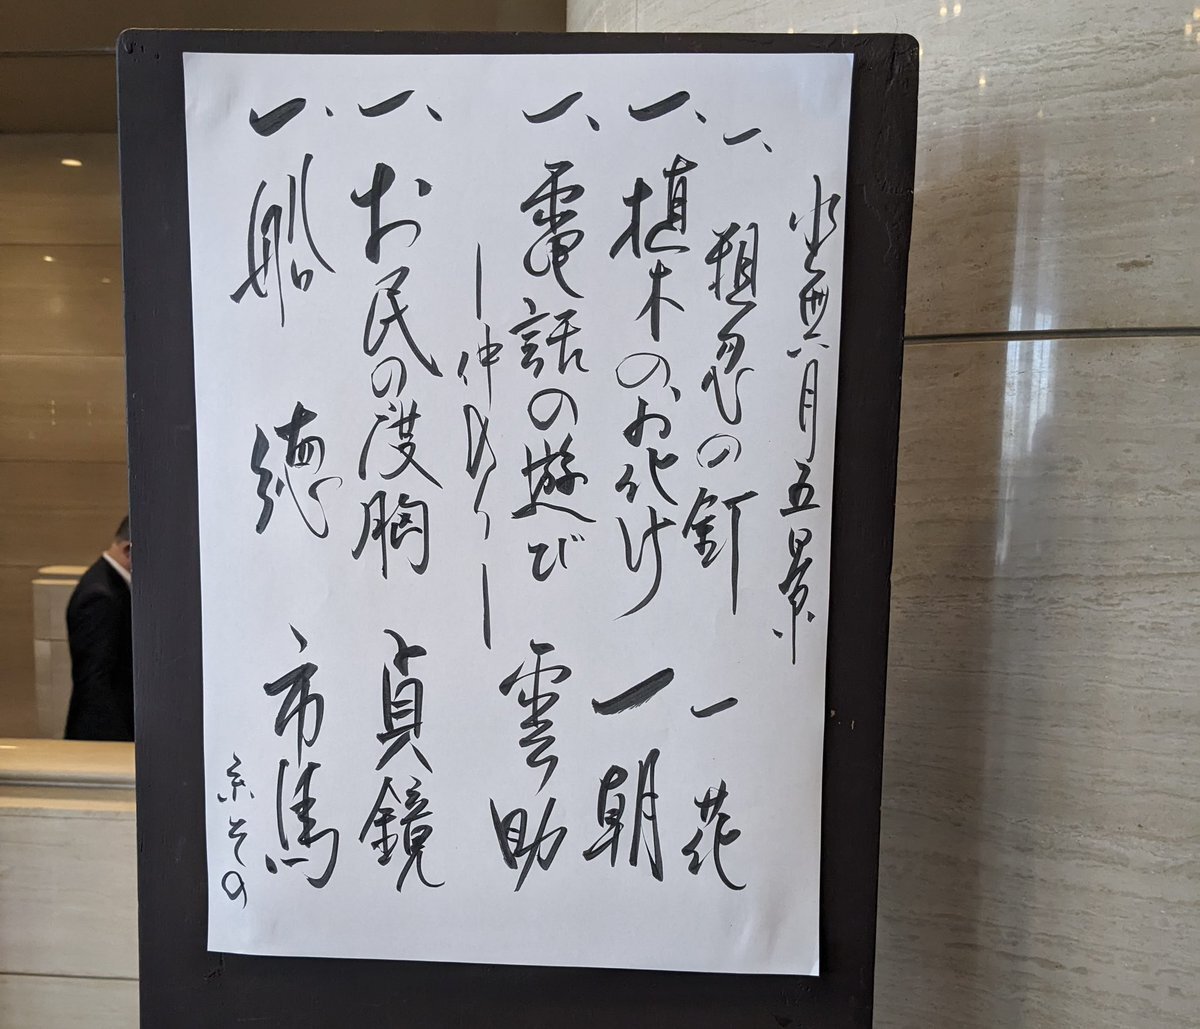 水無月五景
一、粗忽の釘 一花
一、植木のお化け 一朝
一、電話の遊び 雲助
―仲入り―
一、お民の度胸 貞鏡
一、船徳 市馬
糸その